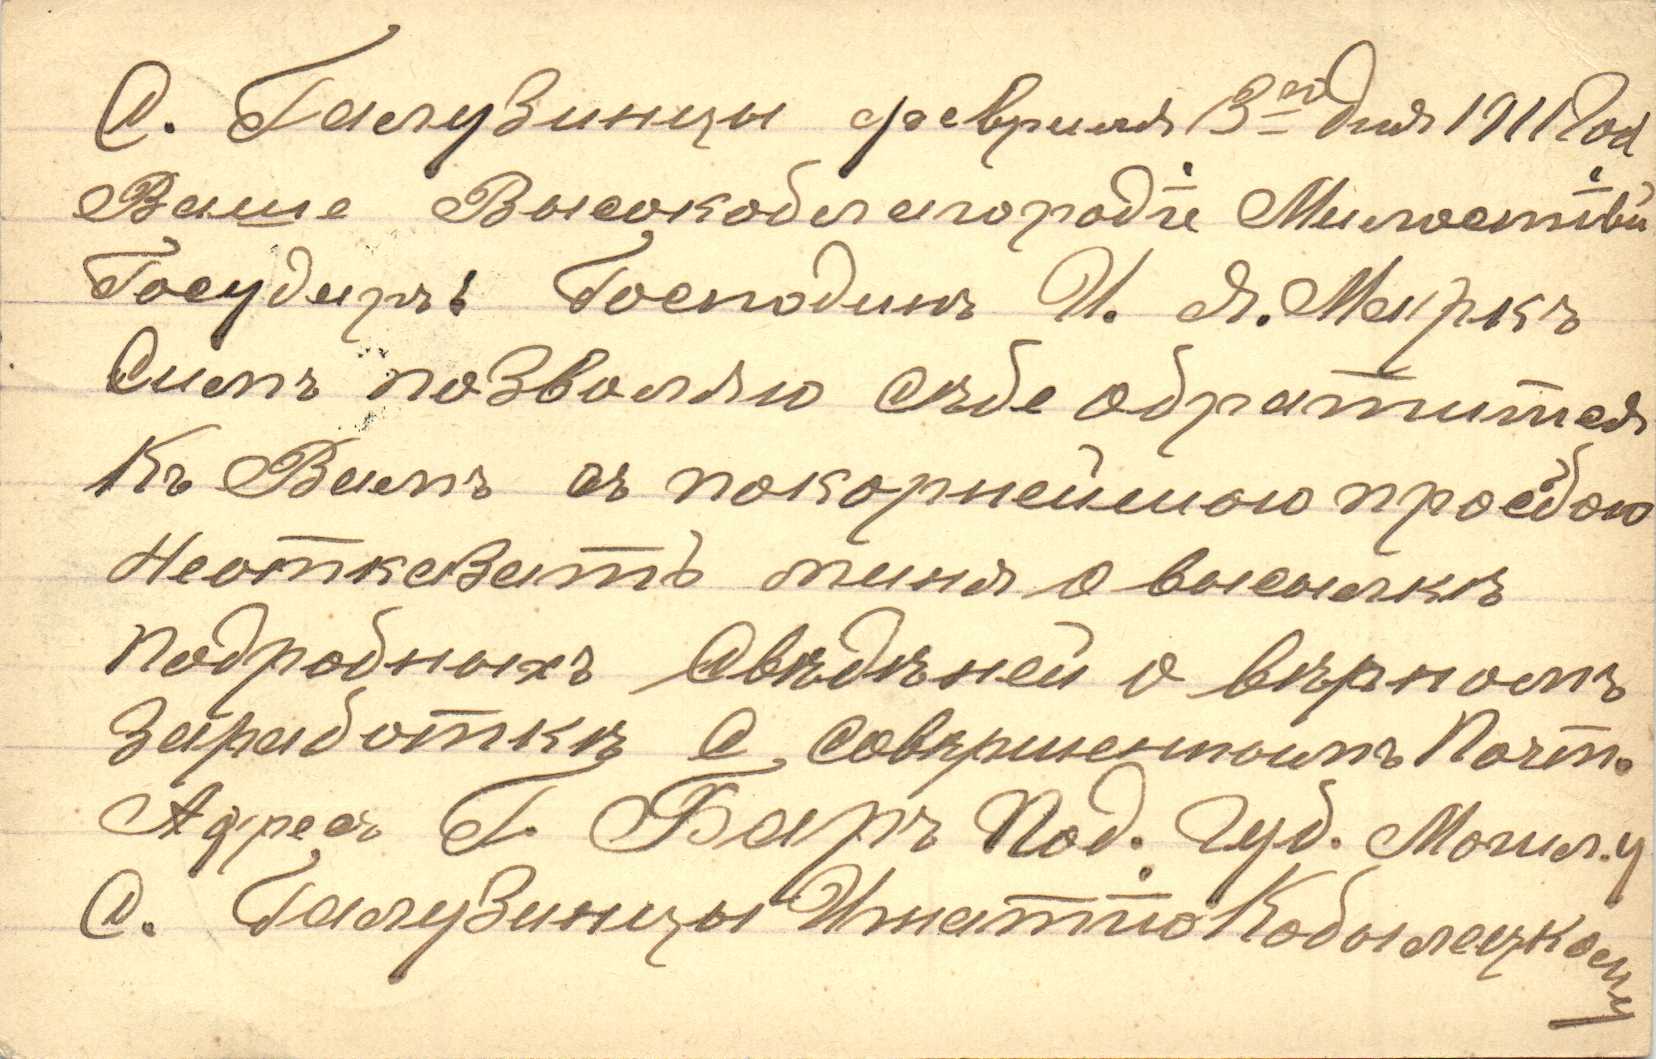 С. Галузинцы февраля 3го дня 1911 Год
Ваше Высокоблагородіе Милостіви
Государь! Господинъ И. Я. Маркъ
Симъ позволяю сѣбе обратится
Къ Вамъ съ покорнейшою прозбою
Неотказатъ миня о высылкѣ
Подробныхъ Свѣдѣней о вѣрномъ
Заработкѣ С совѣршеннымъ Почт.
Адресъ Г. Баръ Под. Губ. Могил. у
С. Галузинцы Игнатію Кобылецкому